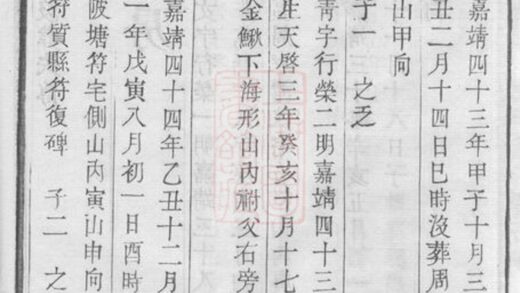 嘉靖四十三年甲子十月三
丑二月十四日巳時沒葬周
山甲向
子一 之乏
青字行榮二明嘉靖四十三
生天啓三年癸亥十月十七
金鰍下海形山內祔父右旁
嘉靖四十四年乙丑十二月
一年戊寅八月初一日酉時
陂塘符宅側山內寅山申向
符質縣符復碑 子二 之